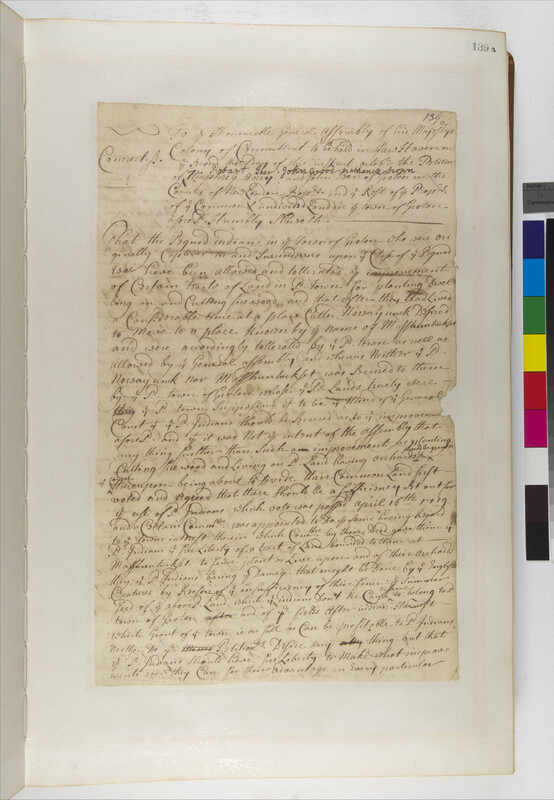 139a
139a
To ye Honourable General Assembly of his Majestys
Colony of Connecticut to be held in New Haven on
ye Second of this instant octobr the Petition
Connectt ss.
of avery John wood nehemiah
and John of Groton in the
County of New London and ye Rest of ye
of ye Common Land in ye town of Groton
aforesd Humbly Sheweth
That the Pequod indians in ye town of Groton who were ori
ginally and Surenderers upon ye Close of ye Pequod
war have been allowed and tollerated ye improvement
of Certain tracts of Land in sd town for planting Dwel
ling on and Cutting fire wood, and that after they had Lived
a Considerable time at a place Called Nawayunk Desired
to Move to a place Known by ye name of Mashuntuckset
and were accordingly tollerated by ye sd town as well as
allowed by ye General assembly and whereas Neither ye sd
Nawayunk nor Mashuntuckset was Secured to them
by ye sd town of Groton whose ye sd Lands truely were
ye sd town Supposing it to be ye Mind of ye General
Court yt ye sd Indians should be Secured as to ye improvement
aforesd and yt it was Not ye intent of the assembly that
any thing further than Such an improvement for planting
Cutting fire wood and Living on sd Land having orchards
thereupon being about to Divide their Common Land first
voted and agreed that there should be a Sufficiency Set out for
ye use of sd Indians which vote was passd april 16th 1719
and a Certain Committee was appointed to Do ye Same having Regard
to ye towns intrest therein which Comtee by their Deed gave them ye
sd Indians ye free Liberty of a tract of Land bounded to them at
Mashuntuckset to fence plant or Live upon and of their orchards
they ye sd Indians bearing ye Damage that might be Done by ye English
Creatures by Reason of ye insufficiency of their fence ye Summer
Feed of ye abovesd Land which ye Indians Dont to belong to ye
town of Groton and of ye fields after indian Harvest
which grant of ye town is as full as Can be profitable to sd Indians
Neither Do ye Petitionrs Desire any thing but that
ye sd Indians should have free Liberty to Make what improve
ments ever they Can for their advantage in Every particular